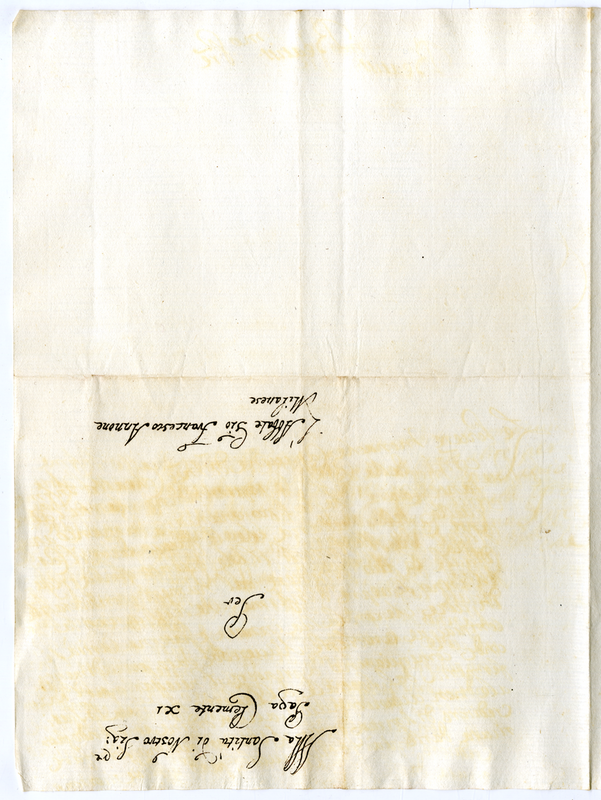 Alla Santità di Nostro Sig:re
Papa Clemente XI
Per
L'Abbate Gio Francesco Annone
Milanese